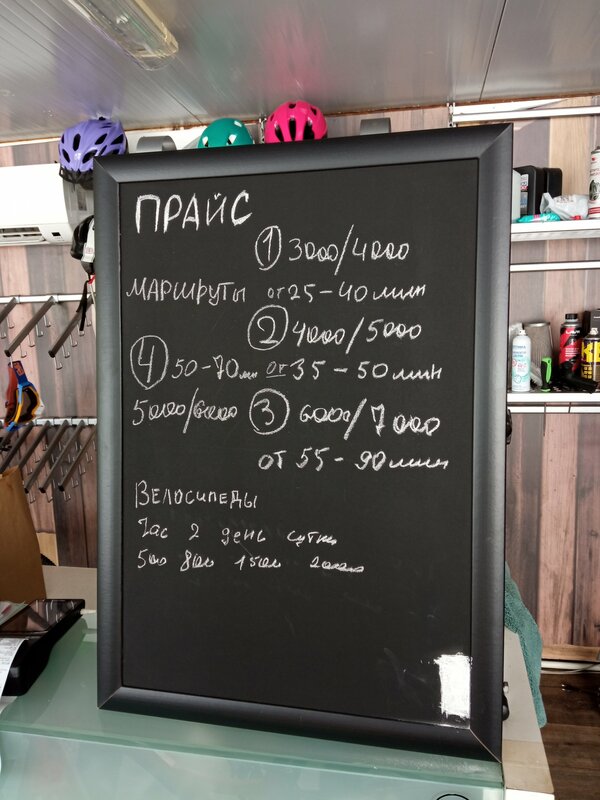 ПРАЙС
① 3000/4000
МАРШРУТЫ от 25-40 мин
② 4000/5000
④ 50-70 мин от 35-50 мин
5000/6000 ③ 6000/7000
от 55-90 мин
ВЕЛОСИПЕДЫ
Час 2 день сутки
500 800 1500 2000